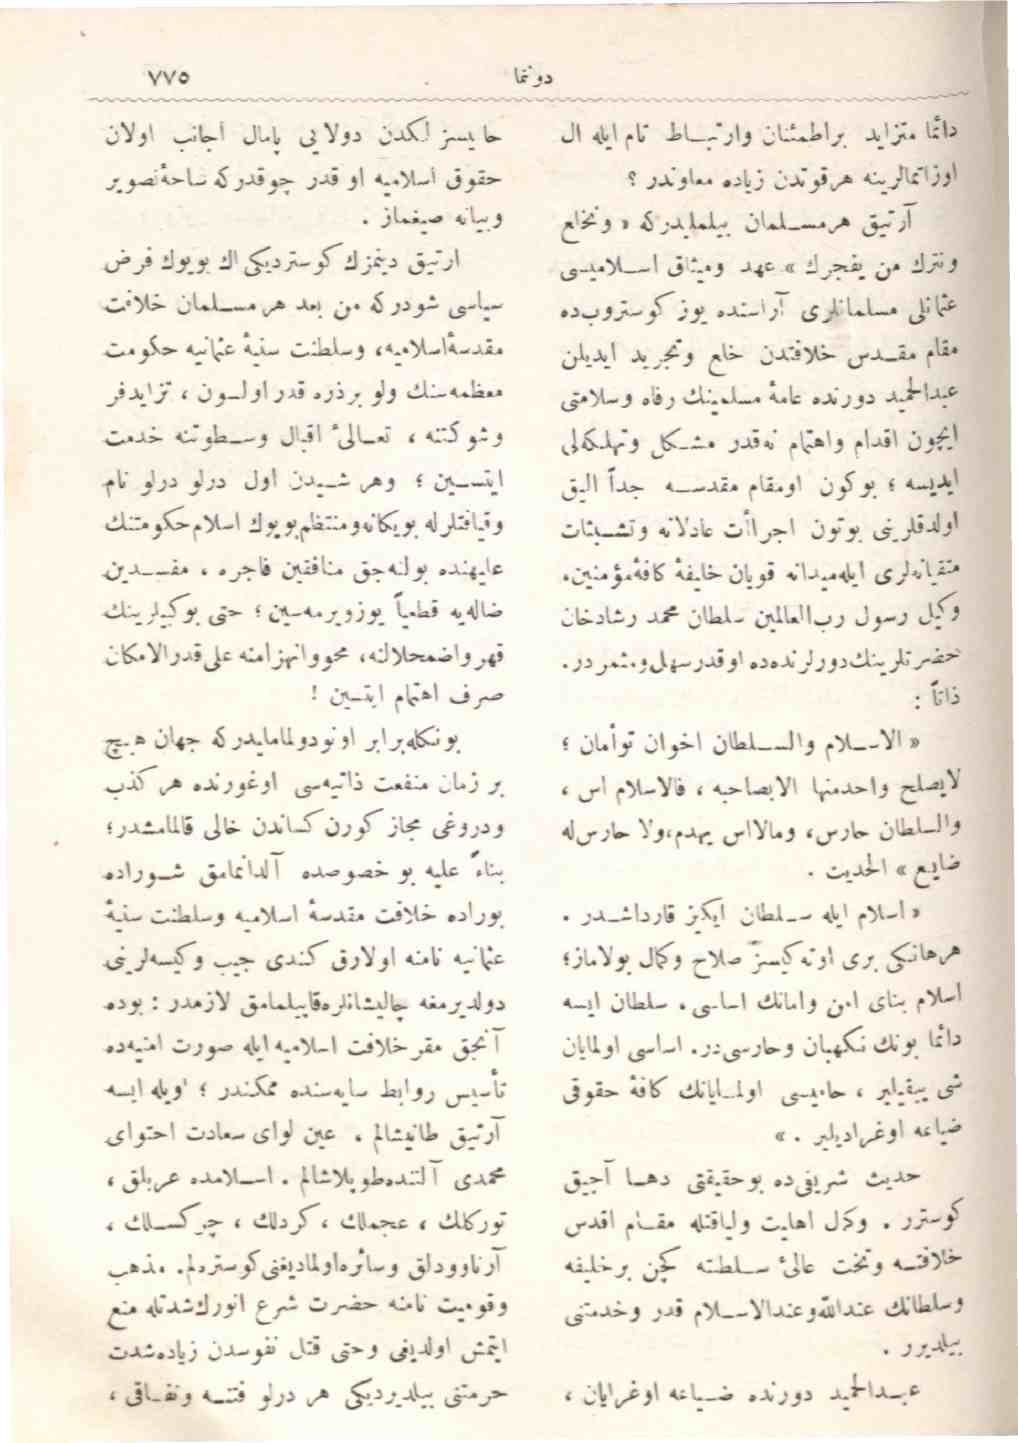 دونما
٧٧٥
دائما متزاید بر اطمئنان وارتباط تام ایله ال
اوزاتمالرینه هرقوتدن زیاده معاوندر ؟
آرتیق هرمسلمان بیلملیدرکه « ونخلع
ونترك من یفجرك » عهد ومیثاق اسلامیسی
عثمانلی مسلمانلری آراسنده یوز کوستروب‌ده
مقام مقدس خلافتدن خلع وتجرید ایدیلن
عبدالحمید دورنده عامهٔ مسلمینك رفاه وسلامتی
ایچون اقدام واهتمام نه‌قدر مشکل وتهلکه‌لی
ایدیسه ؛ بوکون اومقام مقدسه جداً الیق
اولدقلرینی بوتون اجراأت عادلانه وتشبثات
متقیانه‌لری ایله‌میدانه قویان خلیفهٔ کافهٔ‌مؤمنین،
وکیل رسول رب‌العالمین سلطان محمد رشادخان
حضرتلرینك‌دورلرنده‌ده اوقدرسهل‌ومثمر در.
ذاتاً :
« الاسلام والسلطان اخوان توأمان ؛
لایصلح واحدمنها الابصاحبه ، فالاسلام اس ،
والسلطان حارس، ومالااس یهدم،ولا حارس‌له
ضایع » الحدیث .
« اسلام ایله سلطان ایکیز قارداشدر .
هرهانکی بری اوته‌کیسز صلاح وکمال بولاماز؛
اسلام بنای امن وامانك اساسی . سلطان ایسه
دائما بونك نکهبان وحارسی‌در. اساسی اولمایان
شی ییقیلیر ، حامیسی اولمایانك کافهٔ حقوقی
ضیاعه اوغرادیلیر . »
حدیث شریفی‌ده بوحقیقتی دها آچیق
کوسترر . وکمال اهلیت ولیاقتله مقام اقدس
خلافته وتخت عالیٔ سلطنته کچن برخلیفه
وسلطانك عندالله‌وعندالاسلام قدر وخدمتنی
بیلدیرر .
عبدالحمید دورنده ضیاعه اوغرایان ،
حامیسز لکدن دولایی پامال اجانب اولان
حقوق اسلامیه او قدر چوقدرکه ساحهٔ تصویر
وبیانه صیغماز .
ارتیق دینمزك کوستردیکی اك بویوك فرض
سیاسی شودرکه من بعد هرمسلمان خلافت
مقدسهٔ‌اسلامیه، وسلطنت سنیهٔ عثمانیه حکومت
معظمه‌سنك ولو برذره قدر اولسون ، تزایدفر
وشوکتنه ، تعالیٔ اقبال وسطوتنه خدمت
ایتسین ؛ وهر شیدن اول درلو درلو نام
وقیافتلرله بویکانه‌ومنتظم‌بویوك اسلام‌حکومتنك
علیهنده بولنه‌جق منافقین فاجره ، مفسدین
ضاله‌یه قطعیاً یوزویرمه‌سین ؛ حتی بوکبیلرینك
قهر واضمحلالنه، محووانهزامنه علی‌قدرالامکان
صرف اهتمام ایتسین !
بونکله‌برابر اونودولمامایدرکه جهان هیچ
بر زمان منفعت ذاتیه‌سی اوغورنده هر کذب
ودروغی مجاز کورن کساندن خالی قالمامشدر؛
بناءً علیه بو خصوصده آلدانمامق شوراده
بوراده خلافت مقدسهٔ اسلامیه وسلطنت سنیهٔ
عثمانیه نامنه اولارق کندی جیب وکیسه‌لرینی
دولدیرمغه چالیشانلره‌قاپیلمامق لازمدر : بوده
آنجق مقر خلافت اسلامیه ایله صورت امنیه‌ده
تأسیس روابط سایه‌سنده ممکندر ؛ اویله ایسه
آرتیق طانیشالم . عین لوای سعادت احتوای
محمدی آلتنده‌طوپلاشالم . اسلامده عربلق ،
تورکلك ، عجملك ، کردلك ، چرکسلك ،
آرناوودلق وسائره‌اولمادیغنی‌کوستره‌لم. مذهب
وقومیت نامنه حضرت شرع انورك‌شدتله منع
ایتمش اولدیغی وحتی قتل نفوسدن زیاده‌شدت
حرمتنی بیلدیردیکی هر درلو فتنه ونفاقی ،